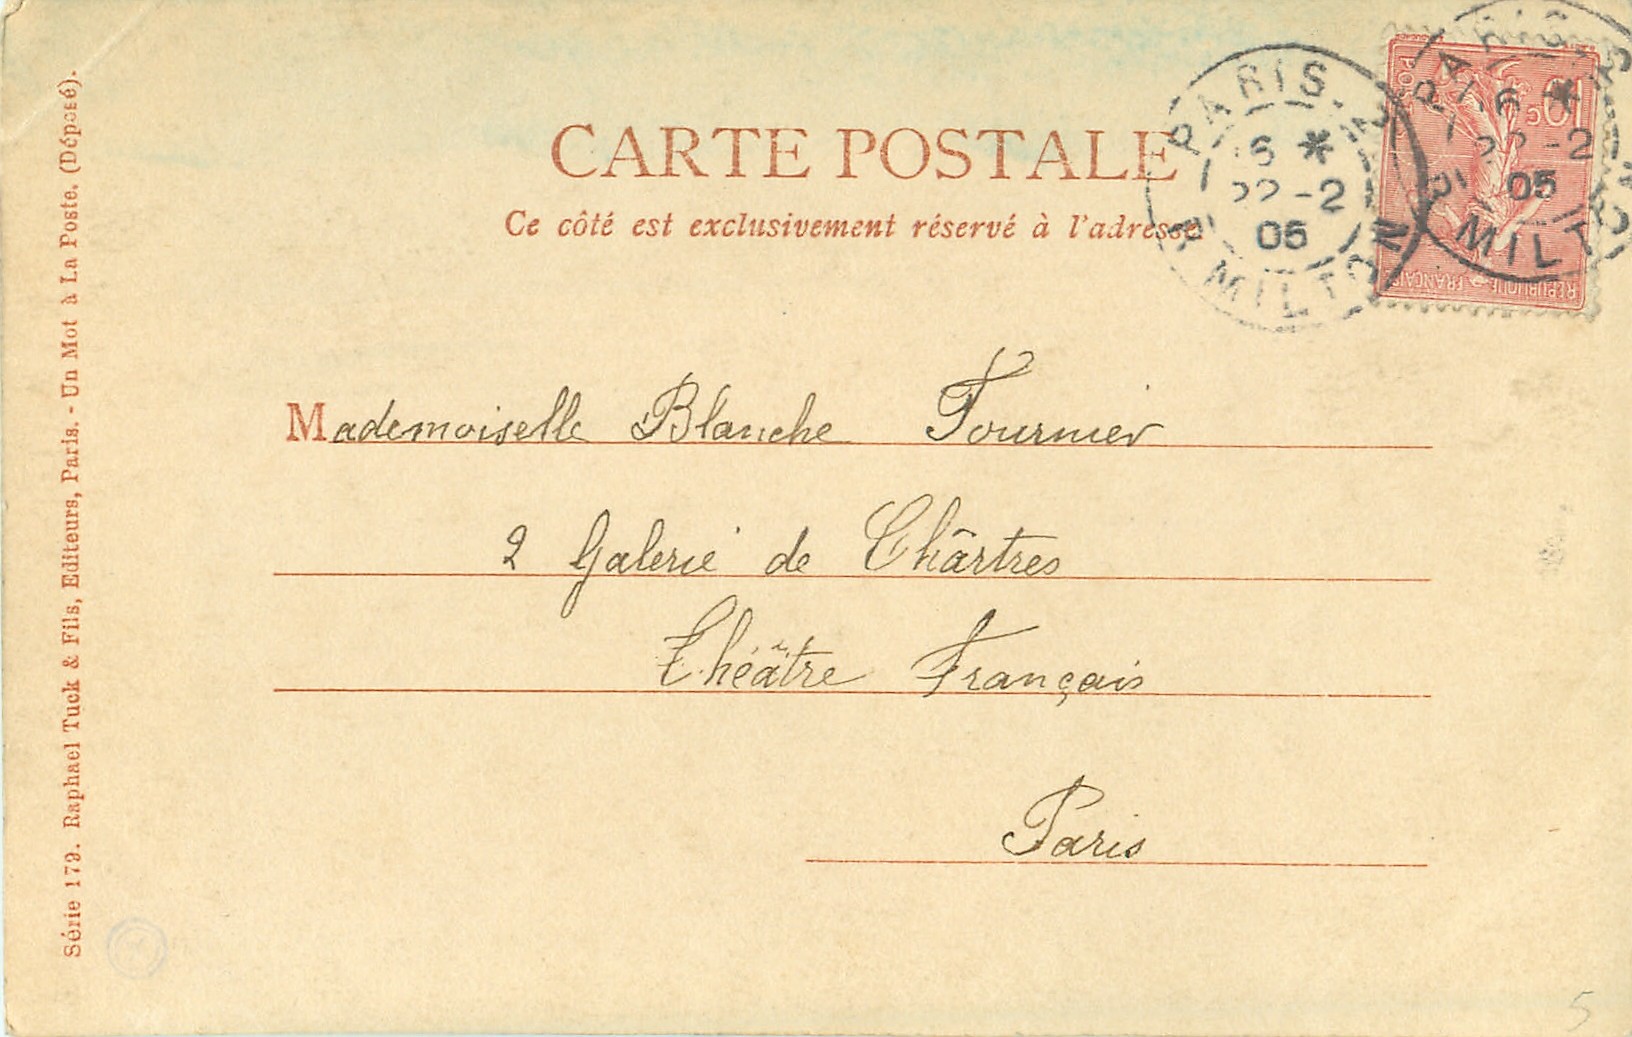 CARTE POSTALE
Ce côté est exclusivement réservé à l'adresse
Mademoiselle Blanche Fournier
2 Galerie de Chârtres
Théâtre Français
Paris
Série 179. Raphael Tuck & Fils, Editeurs, Paris. - Un Mot à La Poste. (Déposé).
PARIS
6 *
22 -2
05
R. MILTON
PARIS
6 *
22 -2
05
R. MILTON
10c
POSTES
RÉPUBLIQUE FRANÇAISE
5